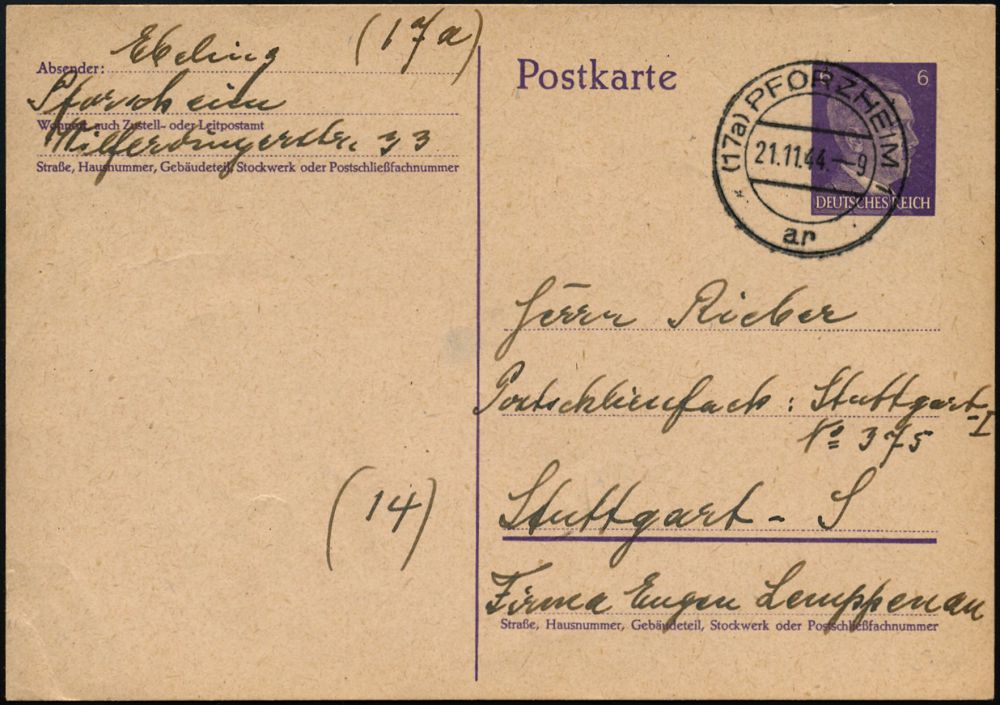 (17a)
Absender: Ebeling
Pforzheim
Wohnort, auch Zustell- oder Leitpostamt
Wilferdingerstr. 33
Straße, Hausnummer, Gebäudeteil, Stockwerk oder Postschließfachnummer
Postkarte
6 6
(17a) PFORZHEIM 1
21.11.44.–9
ar
DEUTSCHES REICH
Herrn Rieber
Postschliessfach: Stuttgart-I
No 375
(14)
Stuttgart - S
Firma Eugen Lemppenau
Straße, Hausnummer, Gebäudeteil, Stockwerk oder Postschließfachnummer